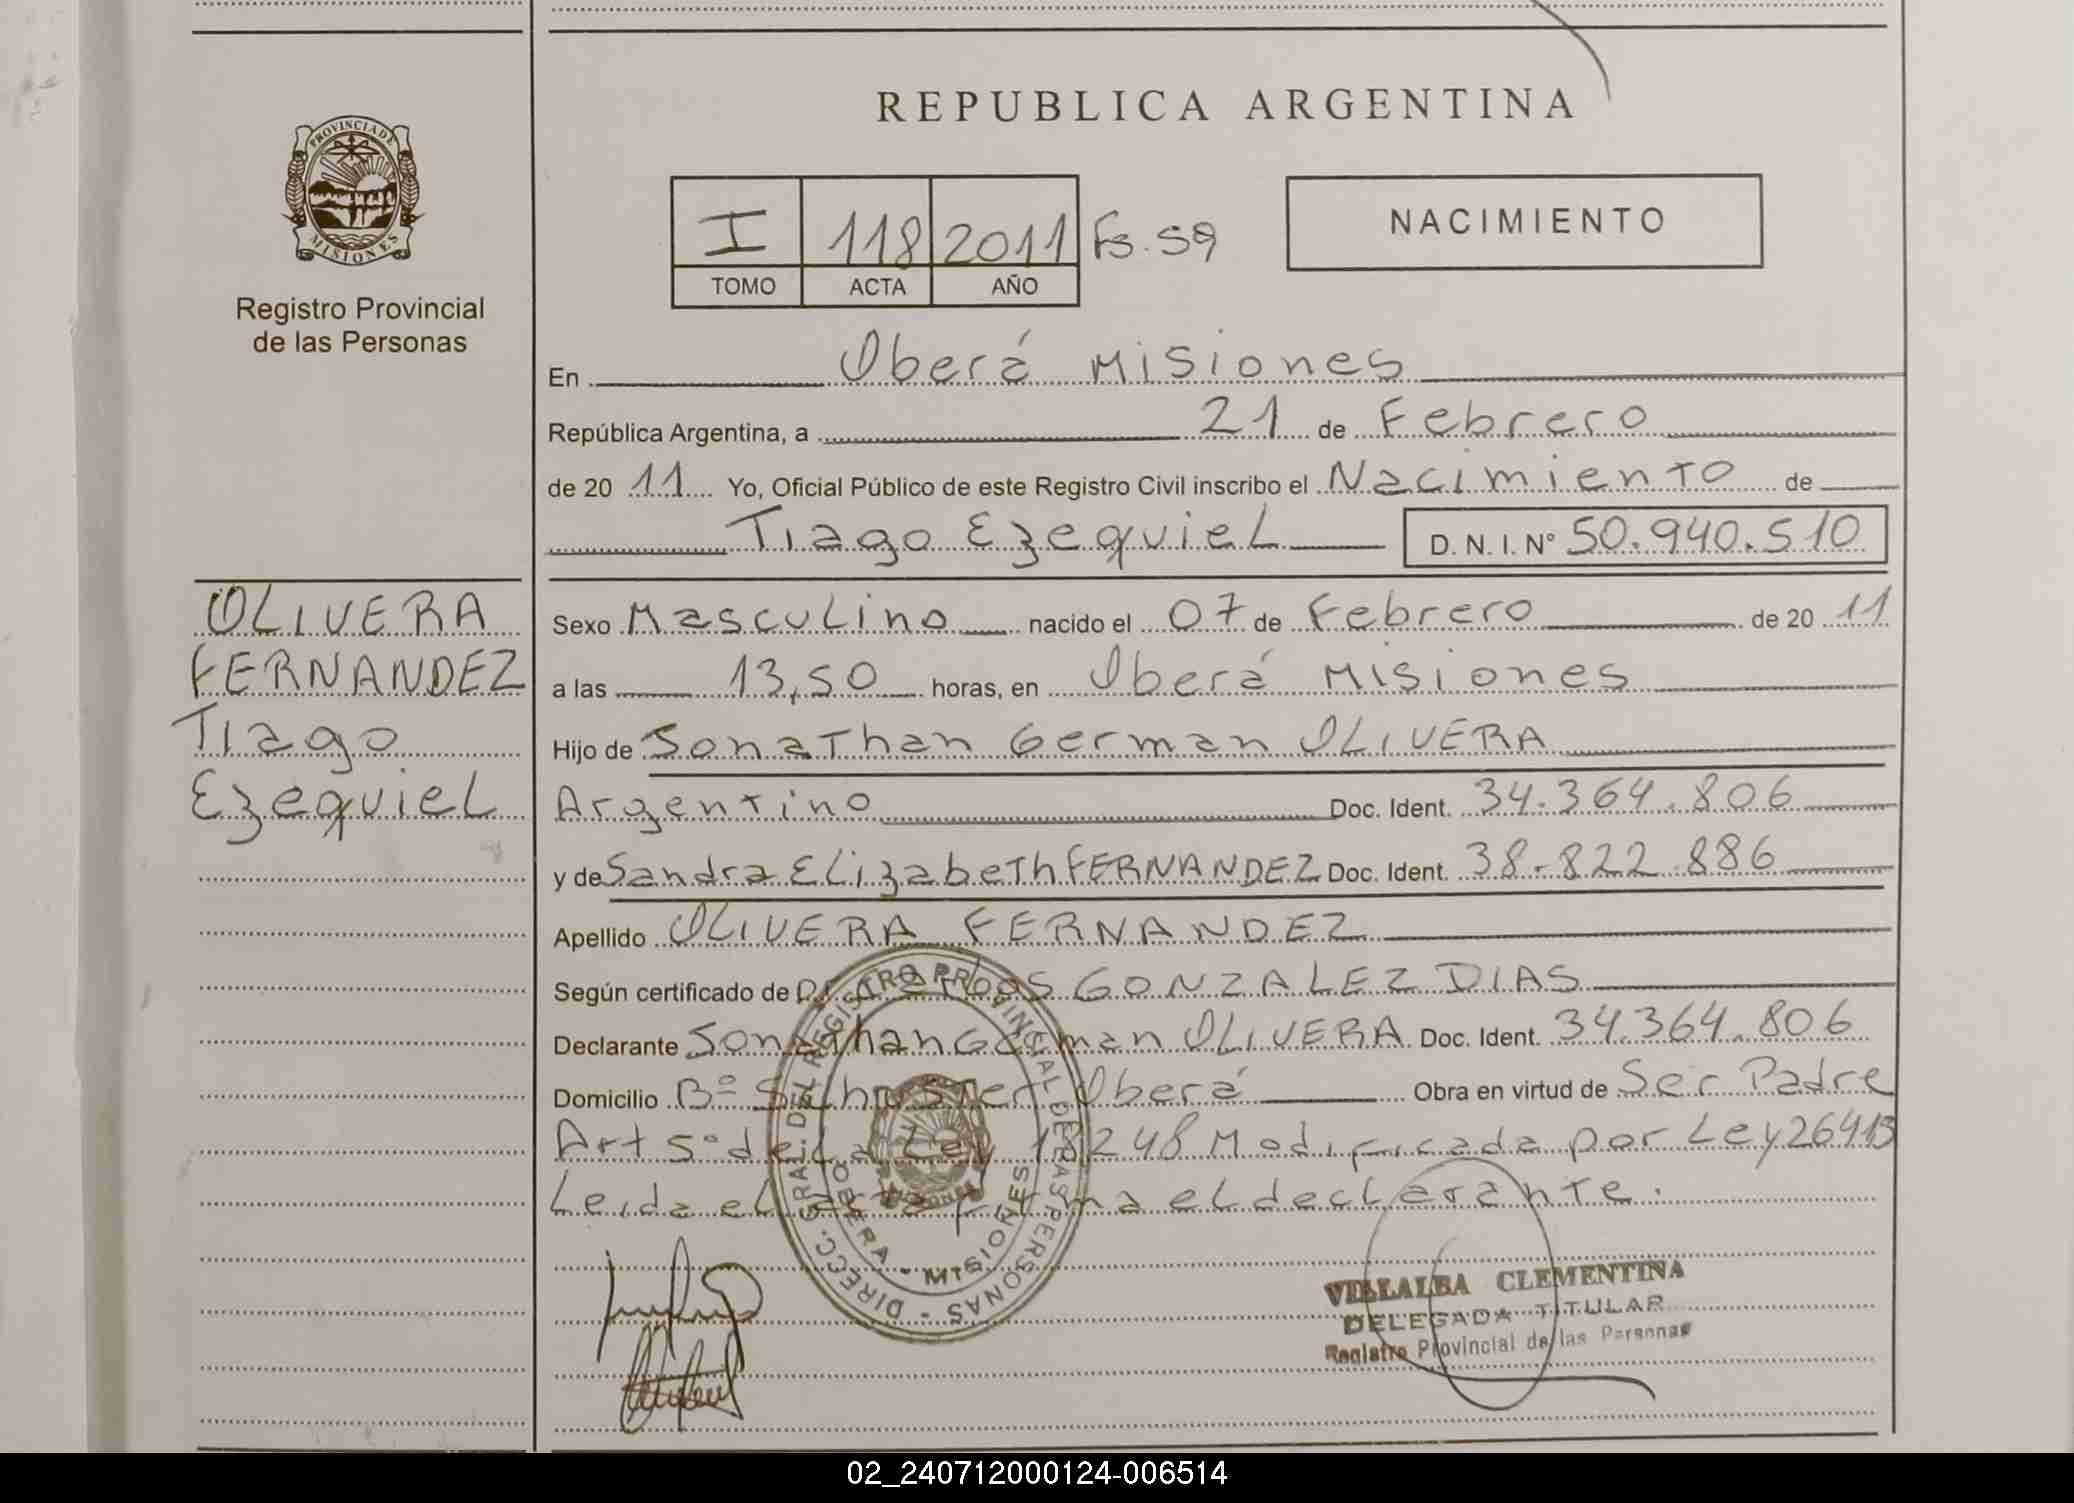 PROVINCIA DE
MISIONES
Registro Provincial
de las Personas
OLIVERA
FERNANDEZ
Tiago
Ezequiel
REPUBLICA ARGENTINA
I 118 2011 Fs. 59
TOMO ACTA AÑO
NACIMIENTO
En Oberá Misiones
República Argentina, a 21 de Febrero
de 20 11 Yo, Oficial Público de este Registro Civil inscribo el Nacimiento de
Tiago Ezequiel D. N. I. Nº 50.940.510
Sexo Masculino nacido el 07 de Febrero de 20 11
a las 13,50 horas, en Oberá Misiones
Hijo de Jonathan German OLIVERA
Argentino Doc. Ident. 34.364.806
y de Sandra Elizabeth FERNANDEZ Doc. Ident. 38.822.886
Apellido OLIVERA FERNANDEZ
Según certificado de GONZALEZ DIAS
Declarante Jonathan German OLIVERA Doc. Ident. 34.364.806
Domicilio Bº Schuster Oberá Obra en virtud de Ser Padre
Art 5º de la Ley 18248 Modificada por Ley 26413
Leida el acta firma el declarante.
DIRECC. GRAL. DEL REGISTRO PROVINCIAL DE LAS PERSONAS
OBERA - MISIONES
VILLALBA CLEMENTINA
DELEGADA TITULAR
Registro Provincial de las Personas
02_240712000124-006514